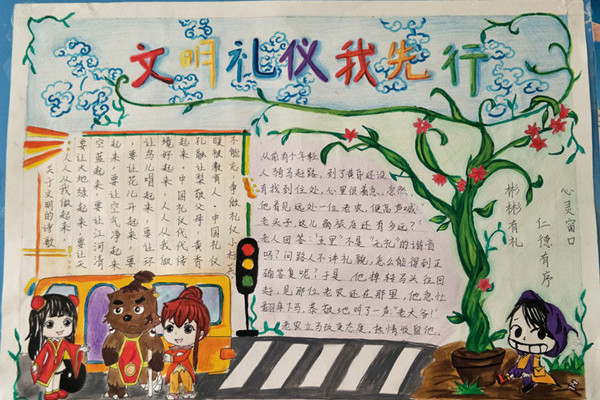 文明礼仪我先行
关于文明的诗歌
人人从我做起来
要让大地绿起来,要让天
空蓝起来,要让江河清
起来,要让空气净起来
,要让花儿开起来,要
让鸟儿唱起来,要让环
境好起来,人人从我做
起来,中国礼仪代代传
孔融让梨敬父母,黄香
教育人,中国礼仪
争做礼仪小标
从前有个年轻
人骑马赶路,到了黄昏还没
有找到住处,心里很着急。忽然,
他看见远处一位老农,便高声喊"
老头子,这儿离旅店还有多远?"
老人回答:"五里"不是"无礼"的谐音
吗?问路人不讲礼貌,怎么能得到正
确答复呢?于是,他掉转马头往回
赶,见那位老农还在那里,他急忙
翻身下马,恭敬地叫了一声"老大爷!"
老农立马改变态度,热情收留他。
心灵窗口
仁德有序
彬彬有礼